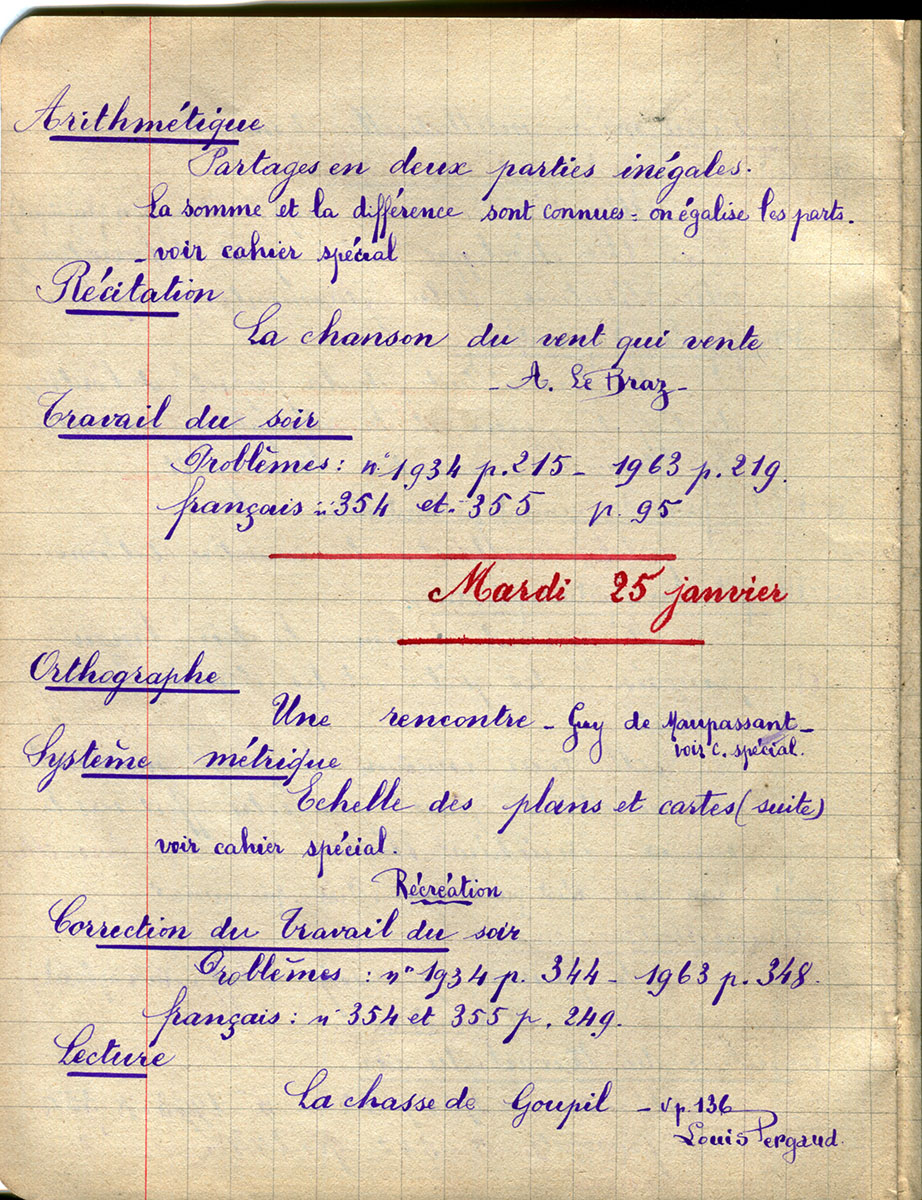 Arithmétique
Partages en deux parties inégales.
La somme et la différence sont connues = on égalise les parts.
- voir cahier spécial
Récitation
La chanson du vent qui vente
- A. Le Braz -
Travail du soir
Problèmes : n° 1934 p. 215 - 1963 p. 219.
français : n° 354 et 355 p. 95
Mardi 25 janvier
Orthographe
Une rencontre - Guy de Maupassant -
voir c. spécial.
Système métrique
Echelle des plans et cartes (suite)
voir cahier spécial.
Récréation
Correction du travail du soir
Problèmes : n° 1934 p. 344 - 1963 p. 348.
français : n° 354 et 355 p. 249.
Lecture
La chasse de Goupil - v p. 136
Louis Pergaud.